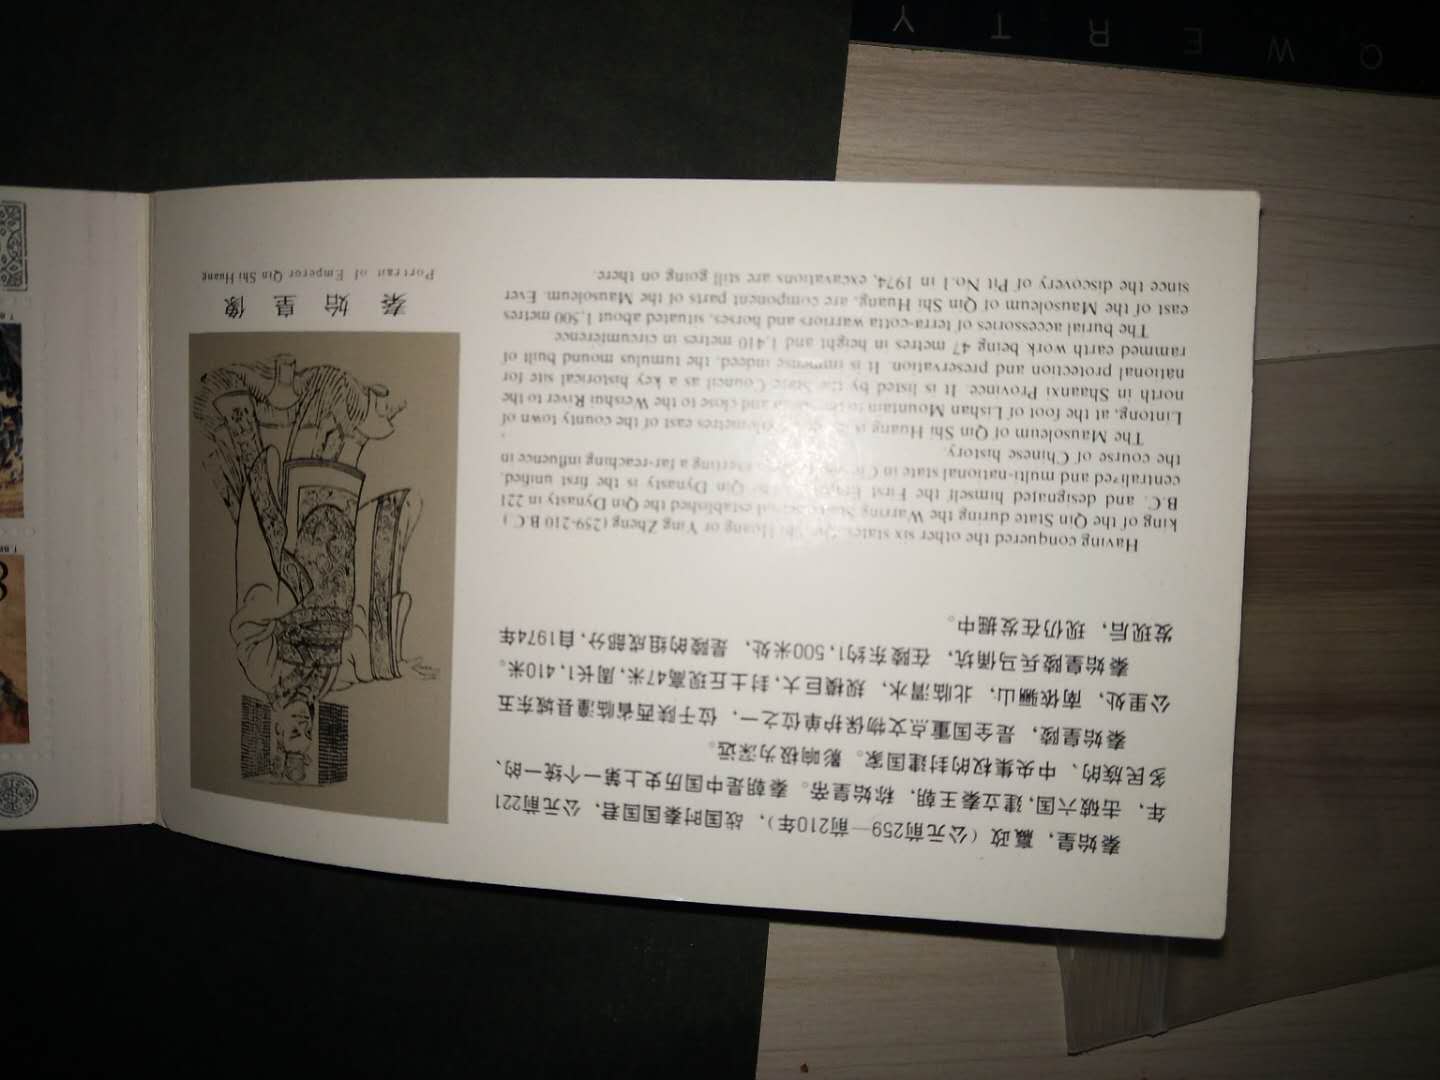 秦始皇，嬴政（公元前259—前210年），战国时秦国国君，公元前221
年，击破六国，建立秦王朝，称始皇帝。秦朝是中国历史上第一个统一的、
多民族的、中央集权的封建国家。影响极为深远。
秦始皇陵，是全国重点文物保护单位之一，位于陕西省临潼县城东五
公里处，南依骊山，北临渭水，规模巨大，封土丘现高47米，周长1,410米。
秦始皇陵兵马俑坑，在陵东约1,500米处，是陵的组成部分，自1974年
发现后，现仍在发掘中。
Having conquered the other six states, Shi Huang or Ying Zheng (259-210 B.C.)
king of the Qin State during the Warring established the Qin Dynasty in 221
B.C. and designated himself the First Qin Dynasty is the first unified,
centralized and multi-national state in exerting a far-reaching influence in
the course of Chinese history.
The Mausoleum of Qin Shi Huang is kilometres east of the county town of
Lintong, at the foot of Lishan Mountain to the and close to the Weishui River to the
north in Shaanxi Province. It is listed by the State Council as a key historical site for
national protection and preservation. It is immense indeed, the tumulus mound built of
rammed earth work being 47 metres in height and 1,410 metres in circumference
The burial accessories of terra-cotta warriors and horses, situated about 1,500 metres
east of the Mausoleum of Qin Shi Huang, are component parts of the Mausoleum. Ever
since the discovery of Pit No.1 in 1974, excavations are still going on there.
秦始皇像
Portrait of Emperor Qin Shi Huang
8
Q W E R T Y